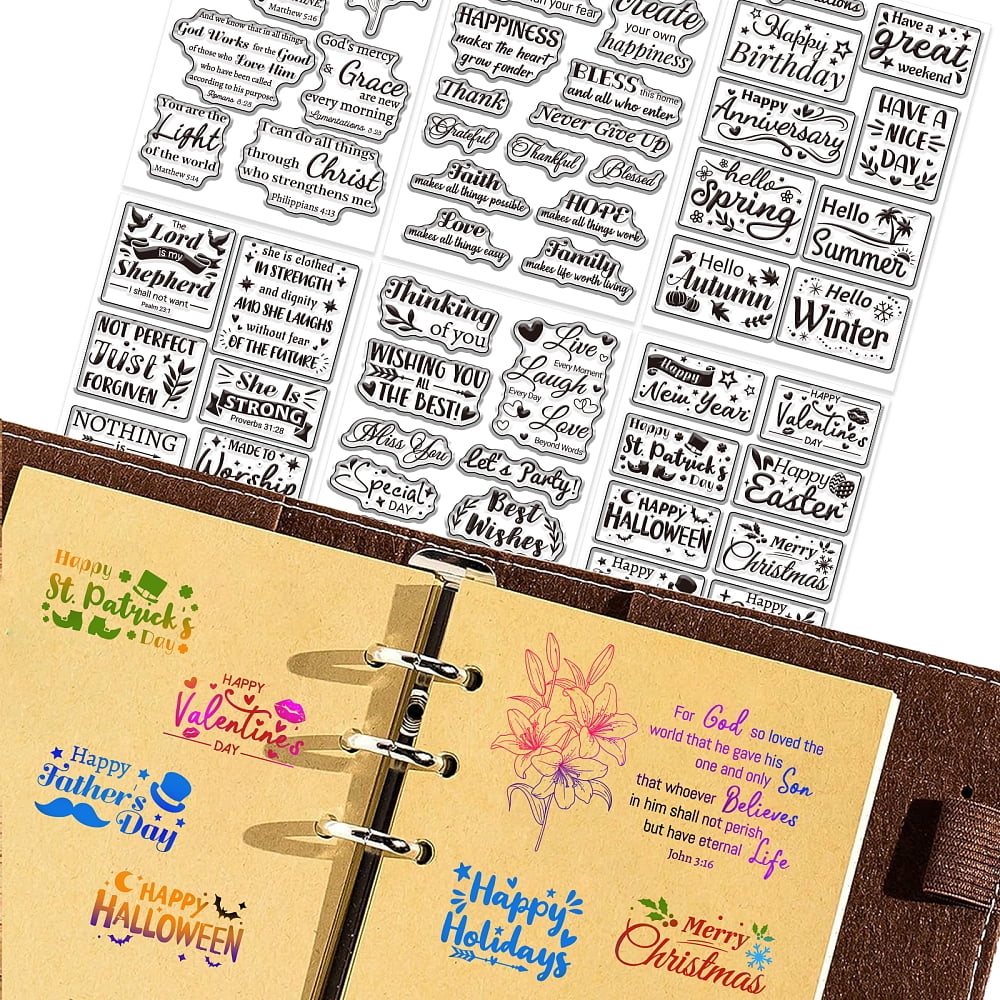 Matthew 5:16
And we know that in all things
God Works for the Good
of those who Love Him
who have been called
according to his purpose.
Romans 8:28
God's mercy
& Grace
are new
every morning
Lamentations 3:23
You are the
Light
of the world
Matthew 5:14
I can do all things
through Christ
who strengthens me.
Philippians 4:13
your fear
HAPPINESS
makes the heart
grow fonder
Create
your own
happiness
BLESS this home
and all who enter
Thank
Never Give Up
Grateful
Thankful
Blessed
Faith
makes all things possible
HOPE
makes all things work
Love
makes all things easy
Family
makes life worth living
Happy
Birthday
Have a
great
weekend
Happy
Anniversary
HAVE A
NICE
DAY
hello
Spring
Hello
Summer
Hello
Autumn
Hello
Winter
The
Lord
is my
Shepherd
I shall not want
Psalm 23:1
she is clothed
IN STRENGTH
and dignity
AND SHE LAUGHS
without fear
OF THE FUTURE
NOT PERFECT
Just
FORGIVEN
She Is
STRONG
Proverbs 31:28
NOTHING
is
MADE TO
Worship
Thinking
of you
WISHING YOU
ALL
THE BEST!
Live
Every Moment
Laugh
Every Day
Love
Beyond Words
Miss You
let's Party!
Special
DAY
Best
Wishes
Happy
New Year
HAPPY
Valentine's
DAY
Happy
St. Patrick's
Day
Happy
Easter
HAPPY
HALLOWEEN
Merry
Christmas
Happy
Happy
Happy
St. Patrick's
Day
HAPPY
Valentine's
DAY
Happy
Father's
Day
HAPPY
HALLOWEEN
For God so loved the
world that he gave his
one and only Son
that whoever Believes
in him shall not perish
but have eternal Life
John 3:16
Happy
Holidays
Merry
Christmas